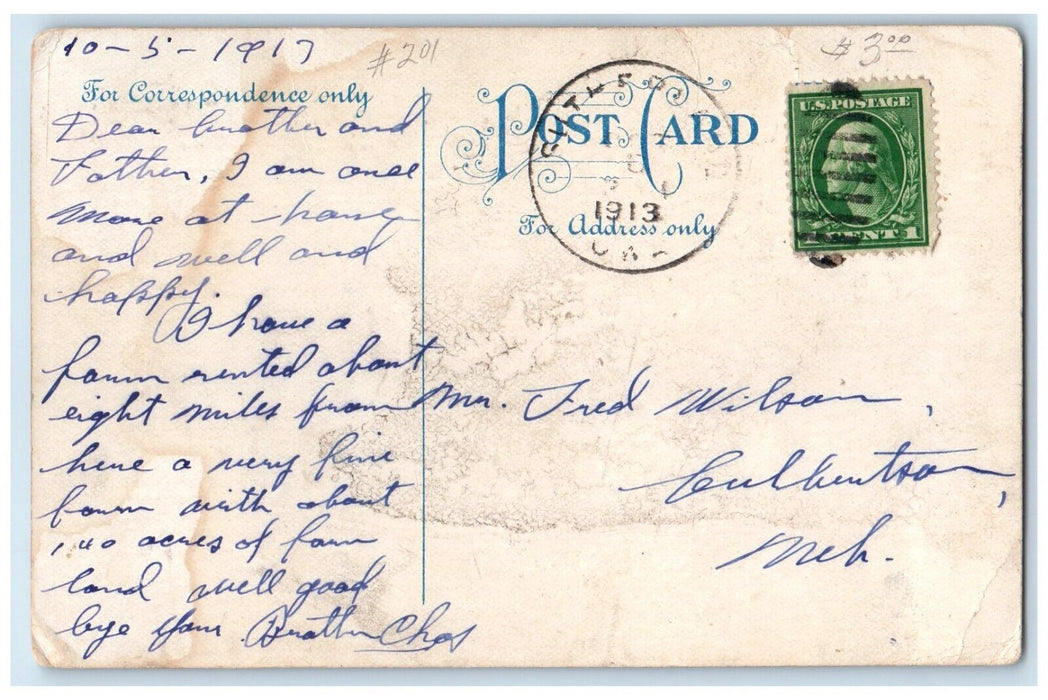 10-5-1913
#201
$3.00
For Correspondence only
Dear brother and
Father, I am once
more at home
and well and
happy.
I have a
farm rented about
eight miles from
here a very fine
farm with about
acres of farm
land well good
bye your Brother Chas
POST CARD
For Address only
1913
OKLA
U.S. POSTAGE
CENT 1
Mr. Fred Wilson,
Culbertson,
Neb.